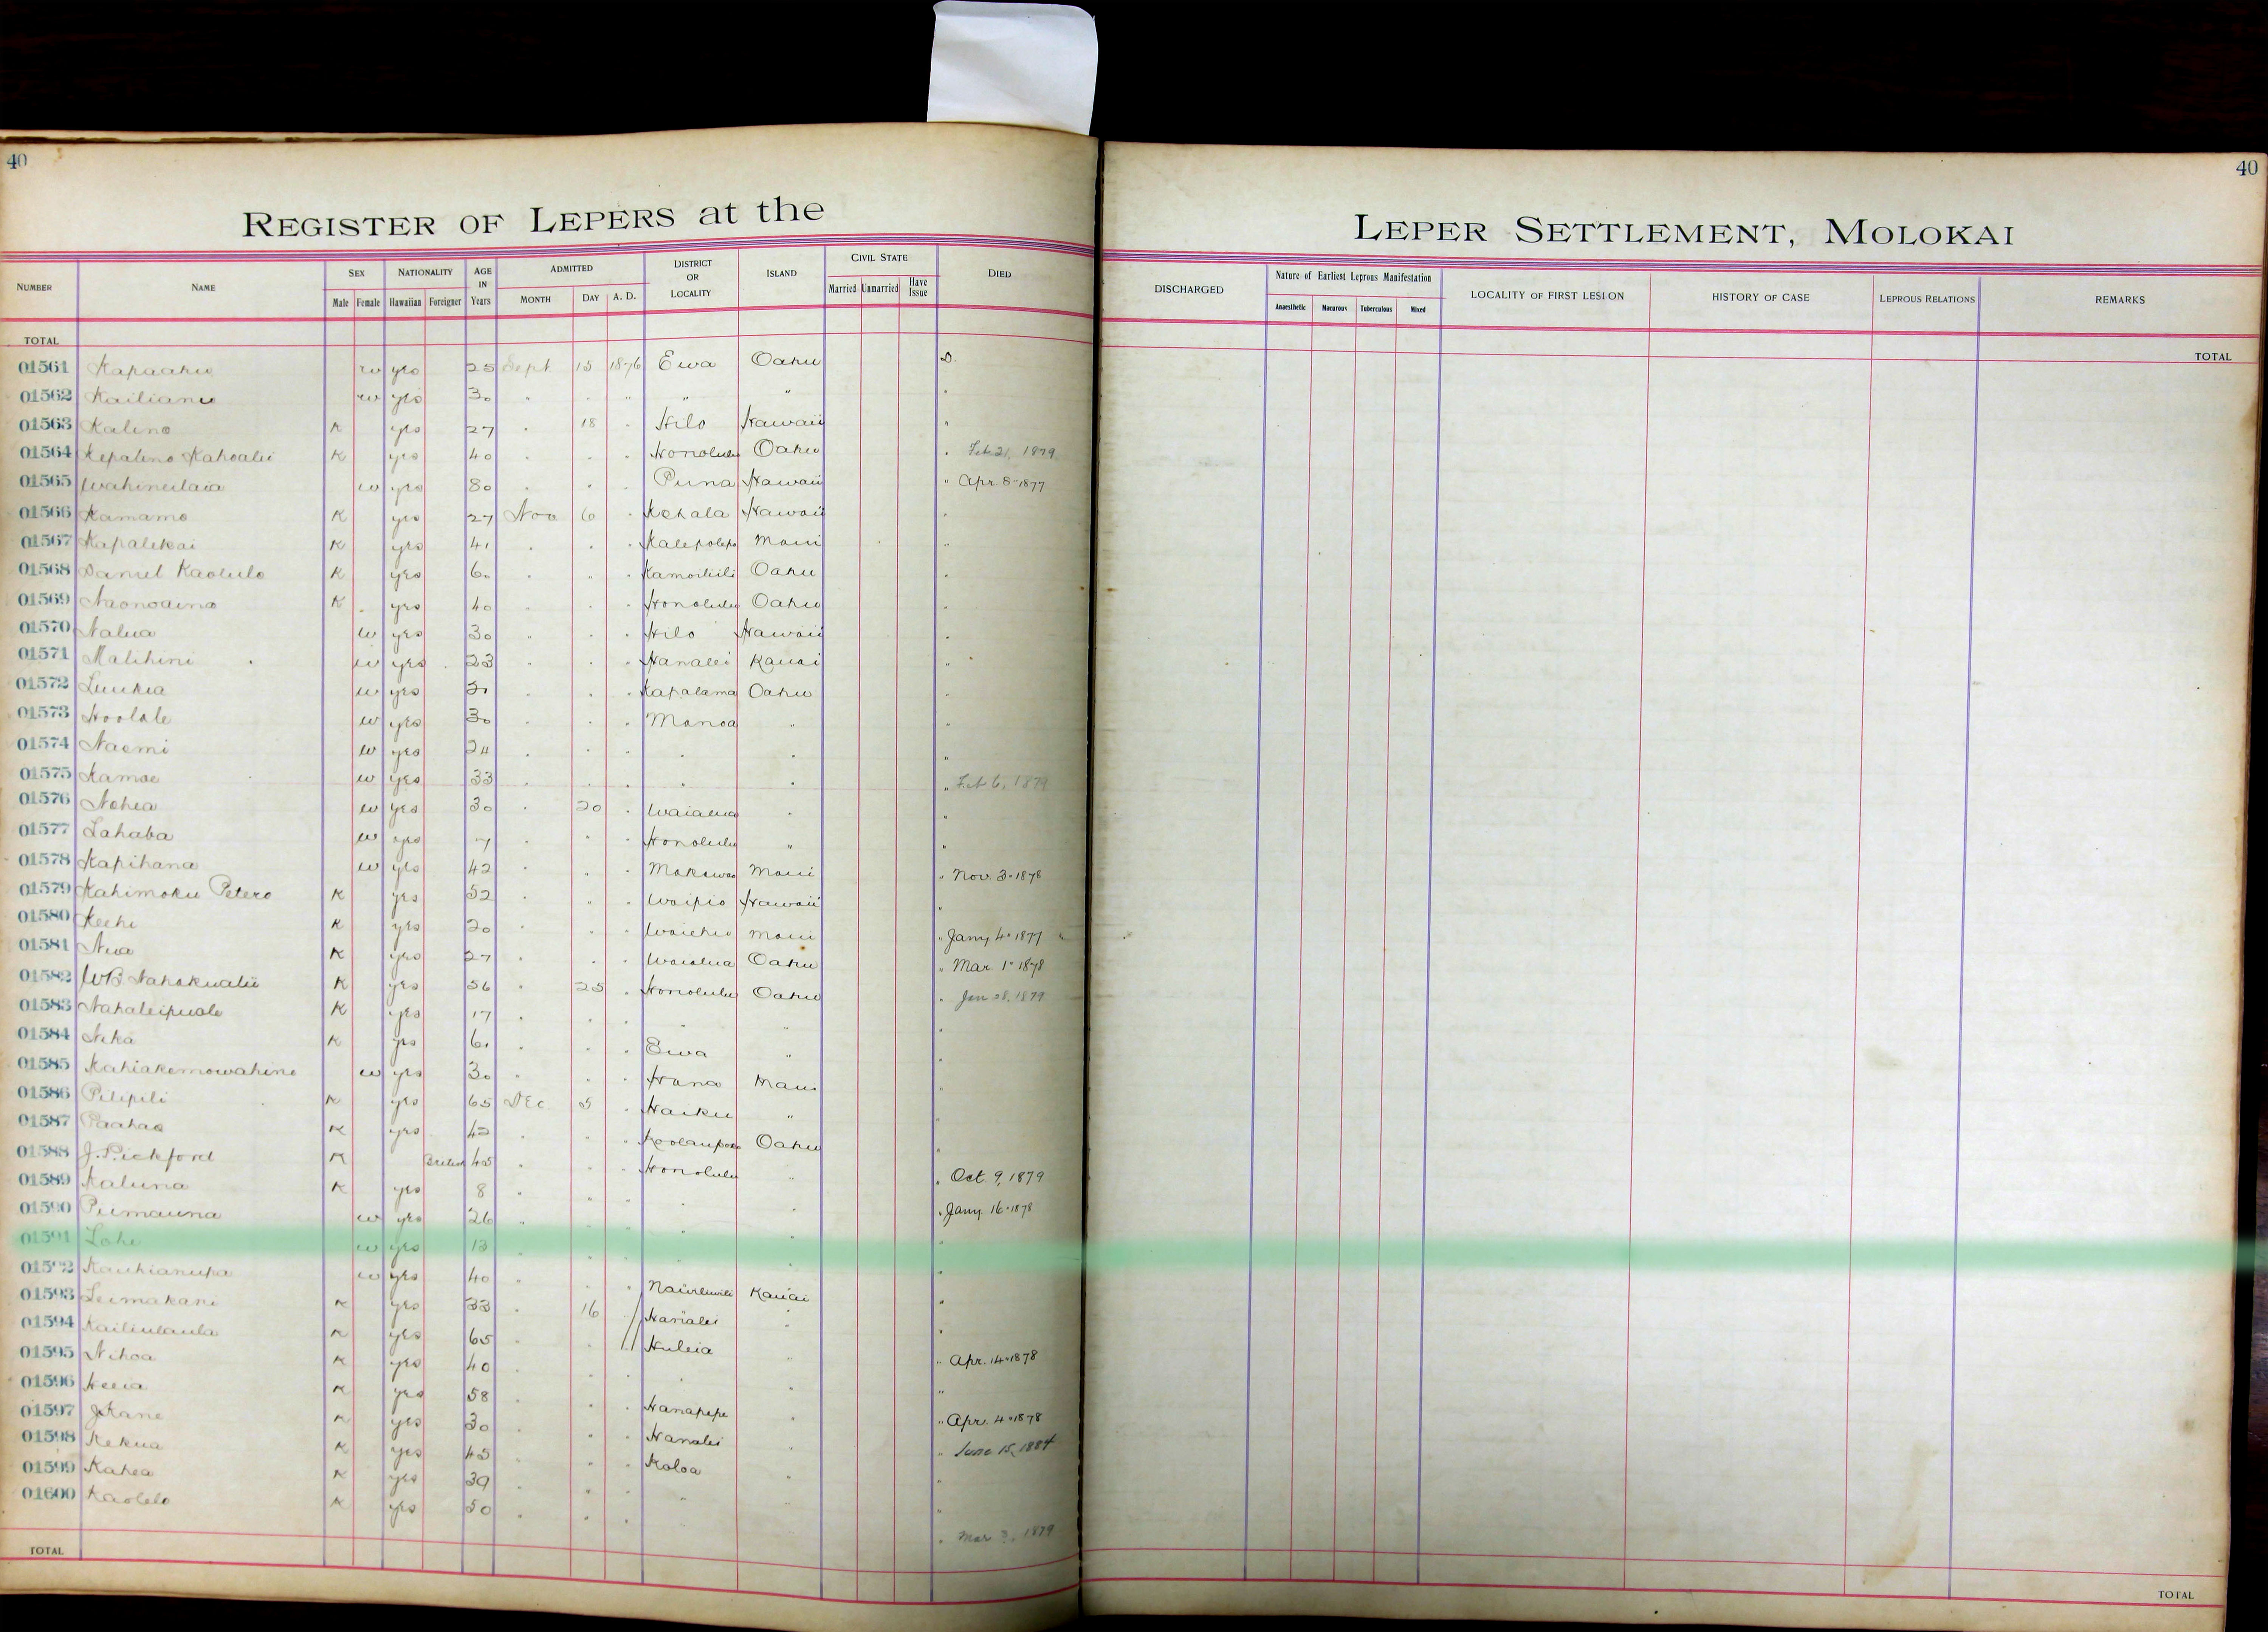 40
40
REGISTER OF LEPERS at the
LEPER SETTLEMENT, MOLOKAI
NUMBER NAME SEX Male Female NATIONALITY Hawaiian Foreigner AGE IN Years ADMITTED MONTH DAY A. D. DISTRICT OR LOCALITY ISLAND CIVIL STATE Married Unmarried Have Issue DIED
DISCHARGED Nature of Earliest Leprous Manifestation Anaesthetic Macurous Tuberculous Mixed LOCALITY OF FIRST LESION HISTORY OF CASE LEPROUS RELATIONS REMARKS
TOTAL TOTAL
01561 Kapaahu w yes 25 Sept 15 1876 Ewa Oahu D.
01562 w yes 30 " " " " " "
01563 Kalino K yes 27 " 18 " Hilo Hawaii "
01564 Kepalino Kahoalii K yes 40 " " " Honolulu Oahu " Feb 21, 1879
01565 Wahineilaia w yes 80 " " " Puna Hawaii " Apr. 8 - 1877
01566 Kamamo K yes 27 Nov 6 " Kohala Hawaii "
01567 Kapalikai K yes 41 " " " Kalepolepo Maui "
01568 Daniel Kaolulo K yes 60 " " " Kamoiliili Oahu "
01569 K yes 40 " " " Honolulu Oahu "
01570 Nalua w yes 30 " " " Hilo Hawaii "
01571 Malihini w yes 23 " " " Hanalei Kauai "
01572 Luukia w yes " " " Kapalama Oahu "
01573 Hoolale w yes 30 " " " Manoa " "
01574 Naomi w yes 24 " " " " " "
01575 Kamae w yes 33 " " " " " " Feb 6, 1879
01576 Nohea w yes 30 " 20 " Waialua " "
01577 Lahaba w yes 7 " " " Honolulu " "
01578 Kapihana w yes 42 " " " Makawao Maui " Nov. 3 - 1878
01579 Kahimoku Petero K yes 52 " " " Waipio Hawaii "
01580 Keehi K yes 20 " " " Waiehu Maui " Jany 4 - 1877 "
01581 Nua K yes 27 " " " Waialua Oahu " Mar. 1 - 1878
01582 WB Nahokualii K yes 56 " 25 " Honolulu Oahu " Jan 28, 1879
01583 Nahaleipuale K yes 17 " " " " " "
01584 Nika K yes 61 " " " Ewa " "
01585 Kahiakemowahine w yes 30 " " " Hana Maui "
01586 Pilipili K yes 65 Dec 5 " Haiku " "
01587 Paahao K yes 42 " " " Koolaupoko Oahu "
01588 J. Pickford K British 45 " " " Honolulu " " Oct. 9, 1879
01589 Kaluna K yes 8 " " " " " " Jany 16 - 1878
01590 Piimauna w yes 26 " " " " " "
01591 Lahi w yes 13 " " " " " "
01592 Kauhianupa w yes 40 " " " Nawiliwili Kauai "
01593 Leimakani K yes 33 " 16 " Hanalei " "
01594 Kailiulaula K yes 65 " " " Huleia " " Apr. 14 - 1878
01595 Nihoa K yes 40 " " " " " "
01596 Heeia K yes 58 " " " Hanapepe " " Apr. 4 - 1878
01597 J Kane K yes 30 " " " Hanalei " " June 15, 1884
01598 Kekua K yes 45 " " " Koloa " "
01599 Kahea K yes 39 " " " " " "
01600 Kaolelo K yes 50 " " " " Mar 3, 1879
TOTAL TOTAL